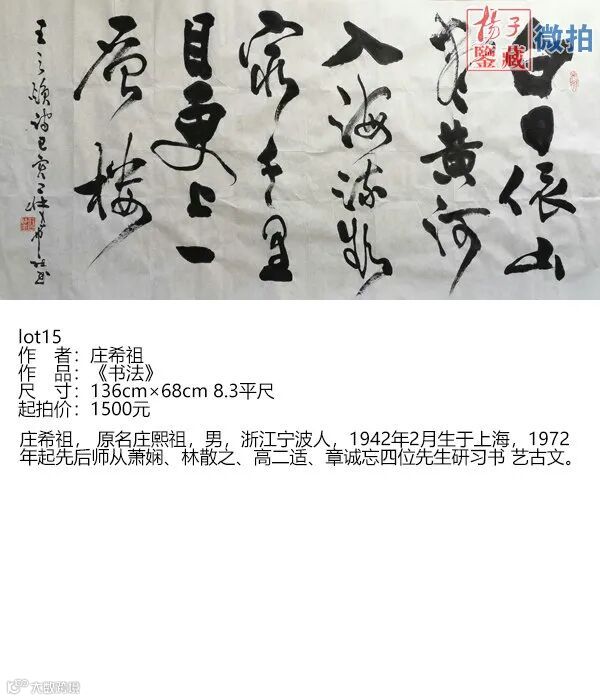 白日依山
尽黄河
入海流欲
窮千里
目更上一
层楼
王之涣诗己亥
楊子
鑒藏
微拍
lot15
作 者：庄希祖
作 品：《书法》
尺 寸：136cm×68cm 8.3平尺
起拍价：1500元
庄希祖， 原名庄熙祖，男，浙江宁波人，1942年2月生于上海，1972
年起先后师从萧娴、林散之、高二适、章诚忘四位先生研习书 艺古文。
大政跨境